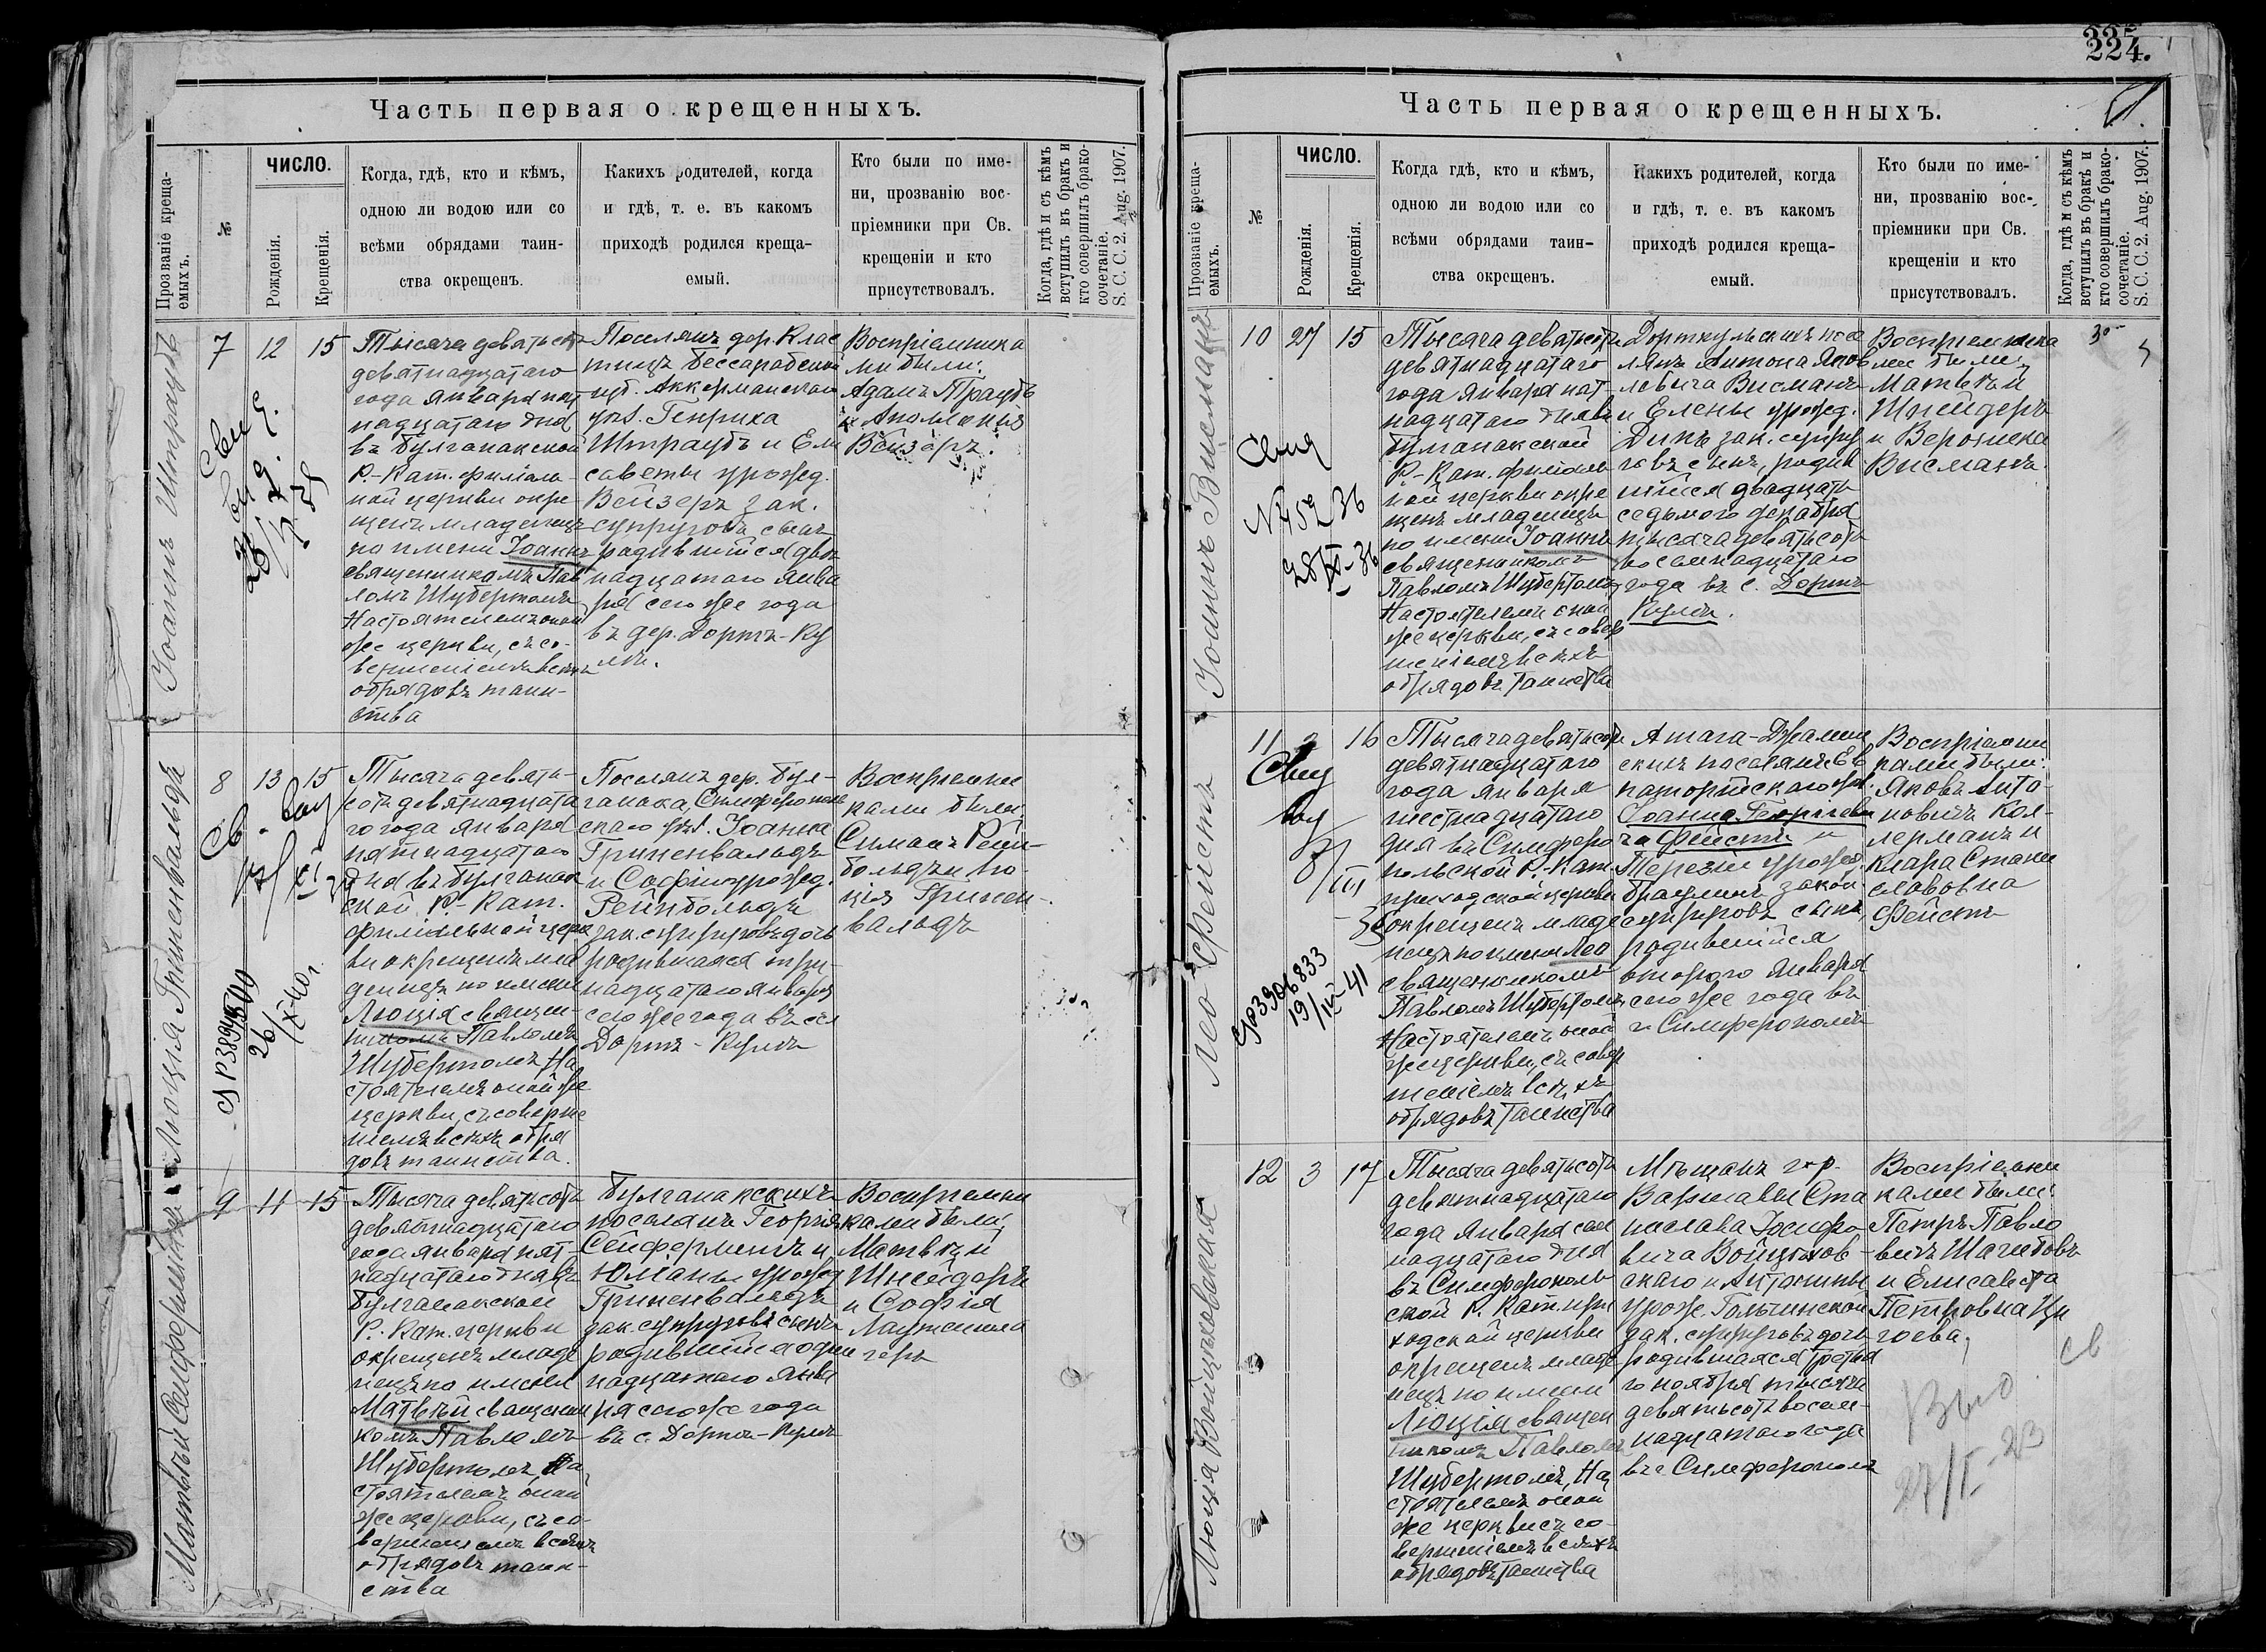 Часть первая о крещенныхъ.
Прозваніе креща-
емыхъ.
№
ЧИСЛО.
Рожденія.
Крещенія.
Когда, гдѣ, кто и кѣмъ,
одною ли водою или со
всѣми обрядами таин-
ства окрещенъ.
Какихъ родителей, когда
и гдѣ, т. е. въ какомъ
приходѣ родился креща-
емый.
Кто были по име-
ни, прозванію вос-
пріемники при Св.
крещеніи и кто
присутствовалъ.
Когда, гдѣ и съ кѣмъ
вступилъ въ бракъ и
кто совершилъ брако-
сочетаніе.
S. C. C. 2. Aug. 1907.
Іоаннъ Штраубъ
7
12
15
Тысяча девятьсотъ
девятнадцатаго
года Января пят
надцатаго дня
въ Булганакской
Р.-Кат. филіаль-
ной церкви окре
щенъ младенецъ
по имени Іоаннъ
священникомъ Пав
ломъ Шубертомъ
Настоятелемъ оной
же церкви, съ со-
вершеніемъ всѣхъ
обрядовъ таин-
ства
Поселянъ дер. Клас
тицъ Бессарабской
губ. Аккерманскаго
уѣз. Генриха
Штраубъ и Ели
саветы урожд.
Вейзеръ зак.
супруговъ сынъ
родившійся две
надцатаго Янва
ря сего же года
въ дер. Дортъ-Ку
лѣ.
Воспріемника
ми были:
Адамъ Траубъ
и Аполлонія
Вейзеръ.
Люція Гриненвальдъ
8
13
15
Тысяча девять-
сотъ девятнадцата
го года Января
пятнадцатаго
дня въ Булганак
ской Р.-Кат.
филіальной церк
ви окрещенъ мла
денецъ по имени
Люція священ-
никомъ Павломъ
Шубертомъ На
стоятелемъ оной же
церкви, съ соверше
ніемъ всѣхъ обря
довъ таинства.
Поселянъ дер. Бул-
ганака, Симферополь
скаго уѣз. Іоанна
Гриненвальдъ
и Софіи урожд.
Рейнбольдъ
зак. супруговъ дочь
родившаяся три-
надцатаго января
сего же года въ сел
Дортъ-Кулѣ
Воспріемни
ками были:
Симонъ Рейн-
больдъ и Лю-
ція Гринен-
вальдъ
Матвѣй Сейферлингъ
9
11
15
Тысяча девятьсотъ
девятнадцатаго
года января пят-
надцатаго дня въ
Булганакской
Р.-Кат. церкви
окрещенъ младе
нецъ по имени
Матвѣй священни
комъ Павломъ
Шубертомъ, На
стоятелемъ оной
же церкви, съ со-
вершеніемъ всѣхъ
обрядовъ таин-
ства
Булганакскихъ
поселянъ Георгія
Сейферлингъ и
Юліаны урожд
Гриненвальдъ
зак. супруговъ сынъ
родившійся один
надцатаго Янва
ря сего же года
въ с. Дортъ-Кулѣ
Воспріемни
ками были:
Матвѣй
Шнейдеръ
и Софія
224.
Часть первая о крещенныхъ.
Прозваніе креща-
емыхъ.
№
ЧИСЛО.
Рожденія.
Крещенія.
Когда гдѣ, кто и кѣмъ,
одною ли водою или со
всѣми обрядами таин-
ства окрещенъ.
Какихъ родителей, когда
и гдѣ, т. е. въ какомъ
приходѣ родился креща-
емый.
Кто были по име-
ни, прозванію вос-
пріемники при Св.
крещеніи и кто
присутствовалъ.
Когда, гдѣ и съ кѣмъ
вступилъ въ бракъ и
кто совершилъ брако-
сочетаніе.
S. C. C. 2. Aug. 1907.
Іоаннъ Висманъ
10
27
15
№ 452 36
28/XI-36
Тысяча девятьсотъ
девятнадцатаго
года Января пят
надцатаго дня въ
Булганакской
Р.-Кат. филіаль
ной церкви окре
щенъ младенецъ
по имени Іоаннъ
священникомъ
Павломъ Шубертомъ
Настоятелемъ оной
же церкви, съ совер
шеніемъ всѣхъ
обрядовъ таинства
Дорткульскихъ посе
лянъ Антона Яков
левича Висманъ
и Елены урожд.
Дикъ зак. супру
говъ сынъ, родив
шійся двадцать
седьмого декабря
тысяча девятьсотъ
восемнадцатаго
года въ с. Дортъ-
Кулѣ.
Воспріемника
ми были:
Матвѣй
Шнейдеръ
и Вероника
Висманъ.
Лео Фейстъ
11
2
16
СЯ 03906833
19/IV-41
Тысяча девятьсотъ
девятнадцатаго
года Января
шестнадцатаго
дня въ Симферо
польской Р.-Кат.
приходской церкви
окрещенъ младе
нецъ по имени Лео
священникомъ
Павломъ Шубертомъ,
Настоятелемъ оной
же церкви, съ совер
шеніемъ всѣхъ
обрядовъ таинства
Атага-Джамин
скихъ поселянъ Ев
паторійскаго уѣз.
Іоанна Георгіеви
ча Фейстъ и
Терезіи урожд.
Браунъ закон
супруговъ сынъ,
родившійся
второго Января
сего же года въ
г. Симферополѣ
Воспріемни
ками были:
Яковъ Анто-
новичъ Кел-
лерманъ и
Клара Стани
славовна
Фейстъ
Люція Войцѣховская
12
3
17
Тысяча девятьсотъ
девятнадцатаго
года Января сем
надцатаго дня
въ Симферополь
ской Р. Кат. при
ходской церкви
окрещенъ младе
нецъ по имени
Люція священ
никомъ Павломъ
Шубертомъ, На
стоятелемъ оной
же церкви съ со-
вершеніемъ всѣхъ
обрядовъ таинства
Мѣщанъ гор.
Варшавы Ста
нислава Іосифо
вича Войцѣхов-
скаго и Антонины
урожд. Гольчинской
зак. супруговъ дочь
родившаяся третья
го ноября тысяча
девятьсотъ восем-
надцатаго года
въ г. Симферополѣ
Воспріемни
ками были:
Петръ Павло
вичъ Шагибовъ
и Елисавета
Петровна